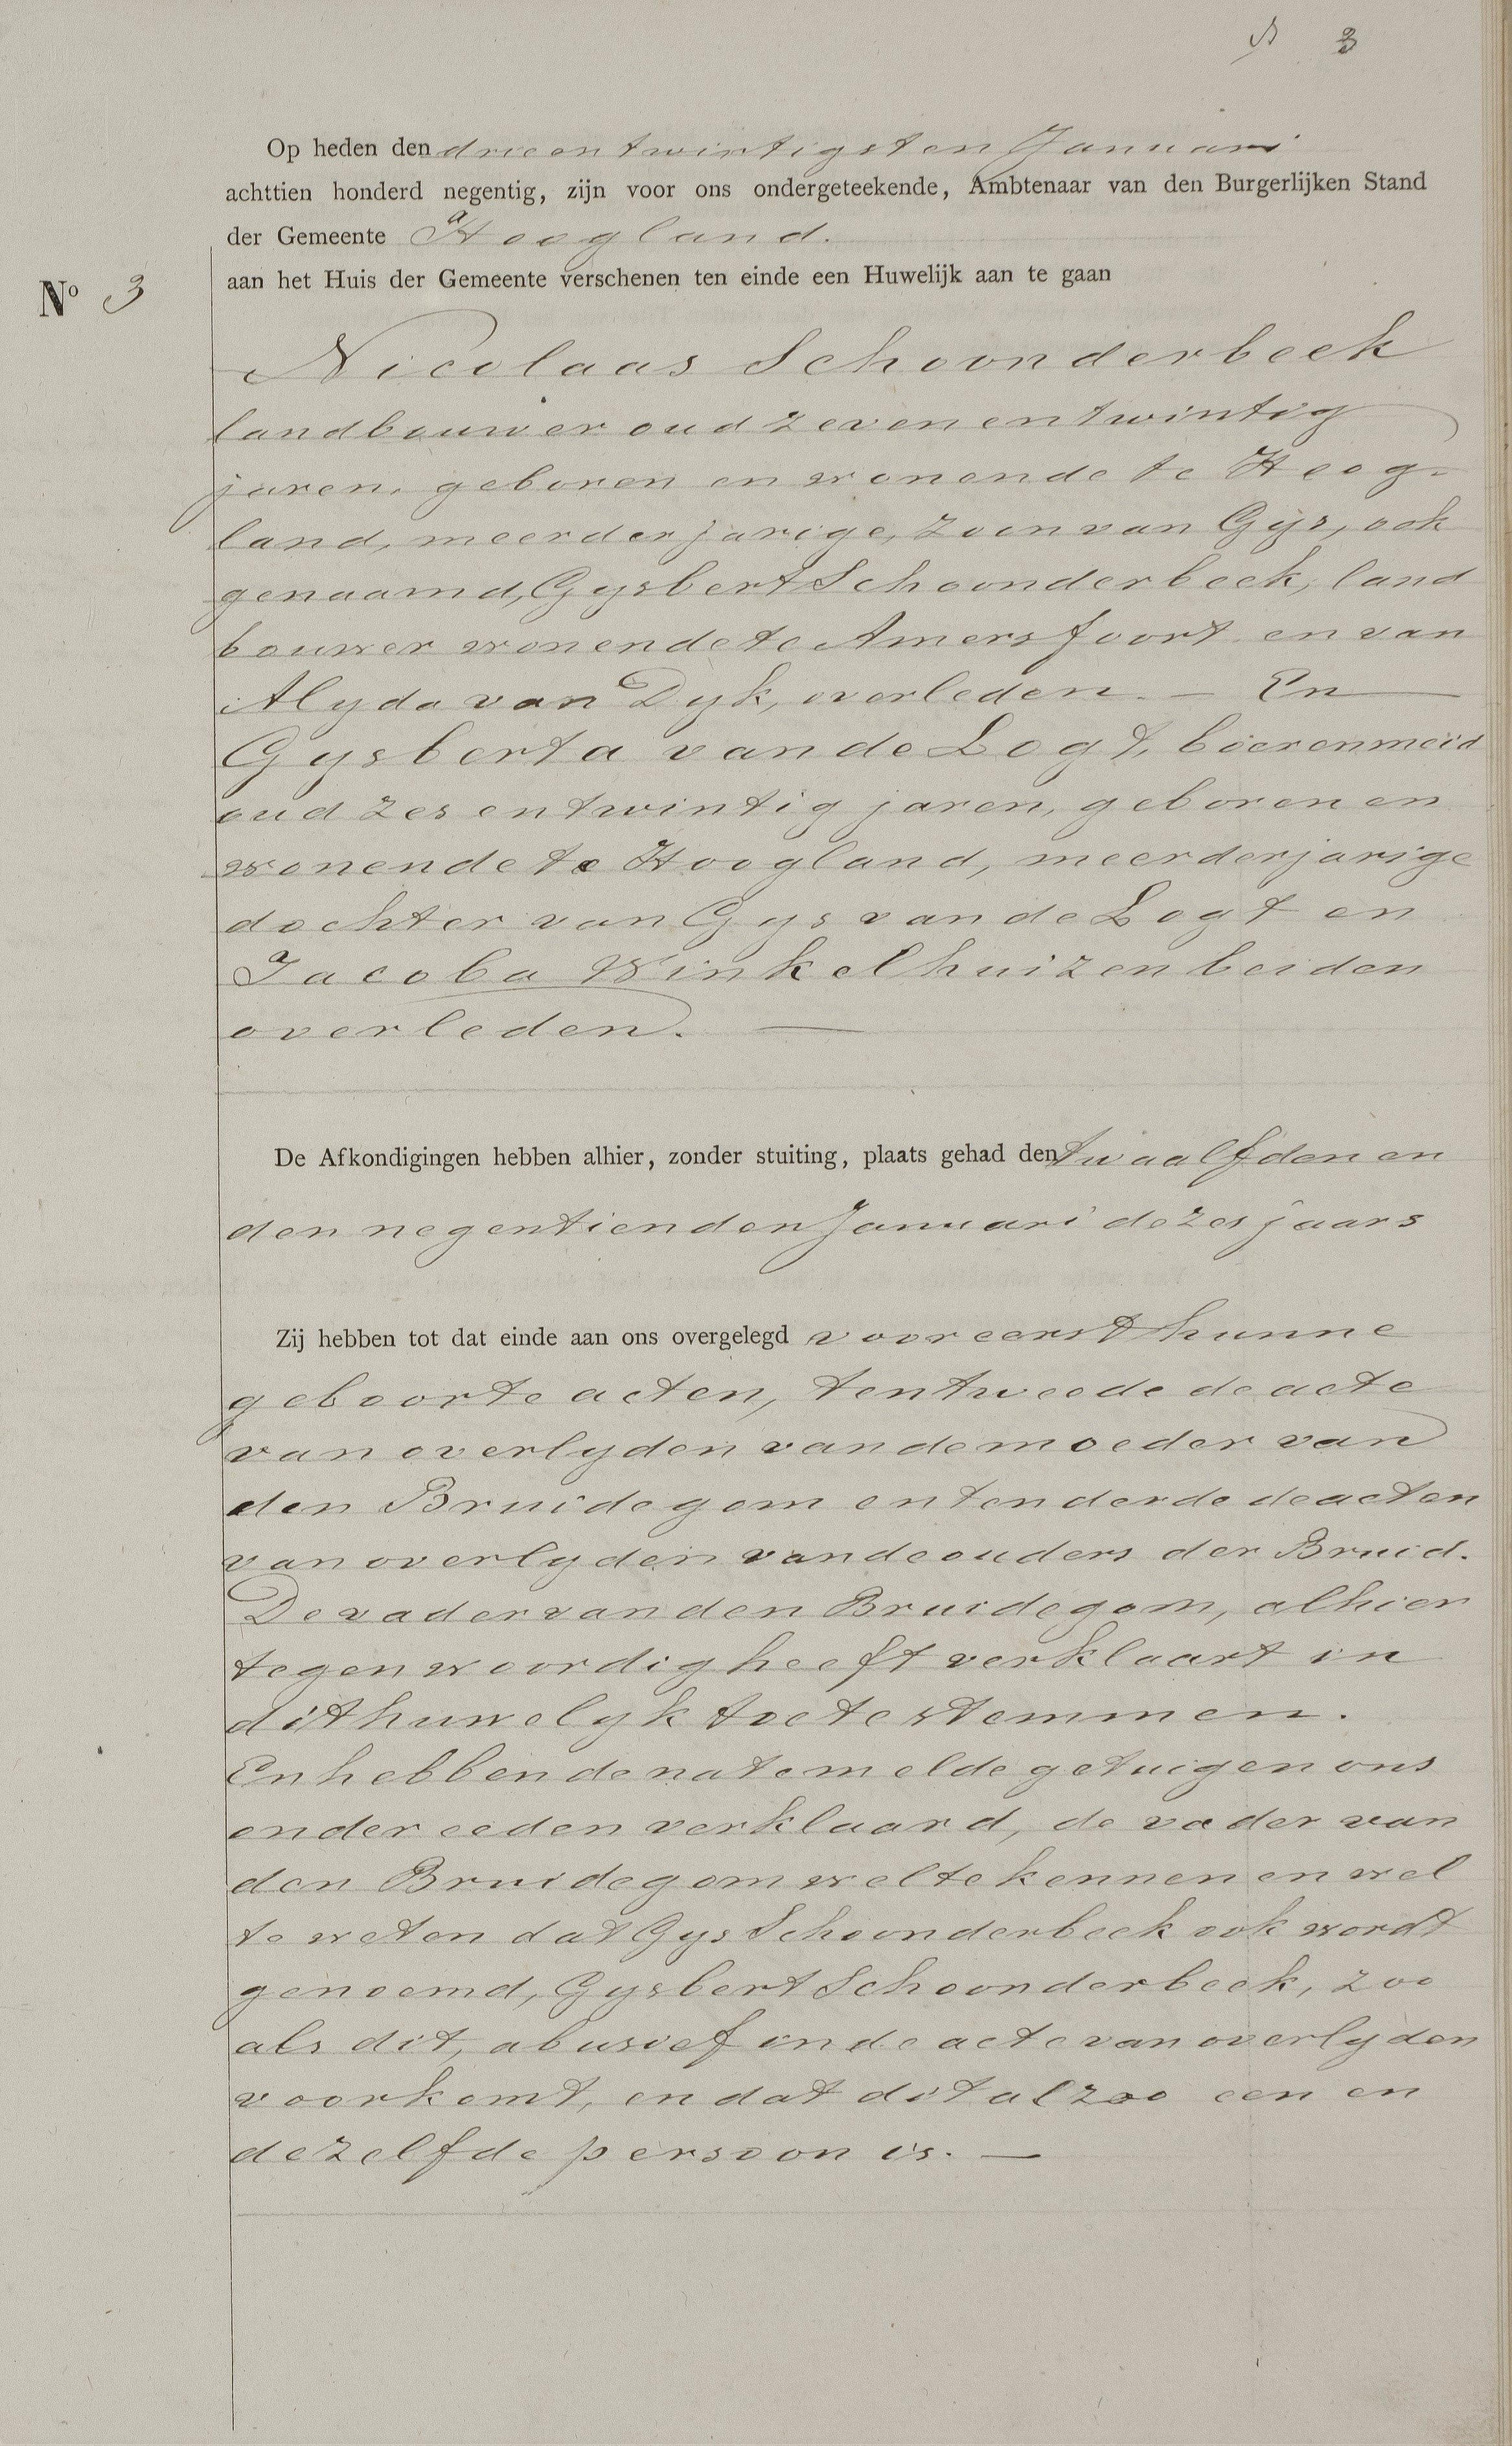 3
Op heden den drieentwintigsten Januari
achttien honderd negentig, zijn voor ons ondergeteekende, Ambtenaar van den Burgerlijken Stand
der Gemeente Hoogland.
aan het Huis der Gemeente verschenen ten einde een Huwelijk aan te gaan
Nº 3
Nicolaas Schoonderbeek
landbouwer oud zevenentwintig
jaren, geboren en wonende te Hoog-
land, meerderjarige, zoon van Gijs, ook
genaamd, Gysbert Schoonderbeek, land
bouwer wonende te Amersfoort en van
Alyda van Dyk, overleden. — En
Gysberta van de Logt, boerenmeid
oud zesentwintig jaren, geboren en
wonende te Hoogland, meerderjarige
dochter van Gys van de Logt en
Jacoba Winkelhuizen beiden
overleden. —
De Afkondigingen hebben alhier, zonder stuiting, plaats gehad den twaalfden en
den negentienden Januari dezes jaars
Zij hebben tot dat einde aan ons overgelegd vooreerst hunne
geboorte acten, ten tweede de acte
van overlyden van de moeder van
den Bruidegom en ten derde de acten
van overlyden van de ouders der Bruid.
De vader van den Bruidegom, alhier
tegenwoordig heeft verklaart in
dit huwelyk toe te stemmen.
En hebben de natemelde getuigen ons
onder eeden verklaard, de vader van
den Bruidegom wel te kennen en wel
te weten dat Gys Schoonderbeek ook wordt
genoemd, Gysbert Schoonderbeek, zoo
als dit, abusief in de acte van overlyden
voorkomt, en dat dit alzoo een en
dezelfde persoon is. —